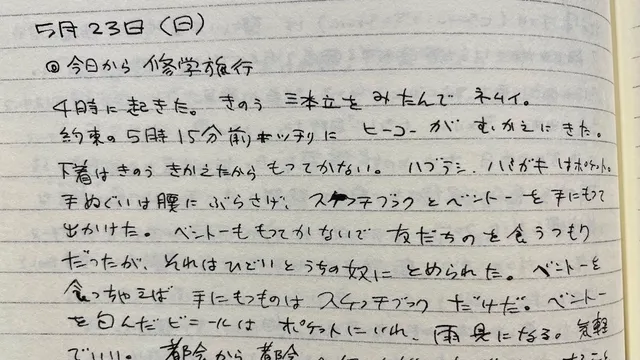 5月23日(日)
◎今日から修学旅行
4時に起きた。きのう三本立をみたんでネムイ。
約束の5時15分前キッチリにヒーコーがむかえにきた。
下着はきのうきかえたからもってかない。ハブラシ、ハミガキはポケット。
手ぬぐいは腰にぶらさげ、スケッチブックとベントーを手にもって
出かけた。ベントーももってかないで友だちのを食うつもり
だったが、それはひどいとうちの奴にとめられた。ベントーを
食っちゃえば手にもつものはスケッチブックだけだ。ベントー
を包んだビニールはポケットにいれ、雨具になる。気軽
でいい。都会から都会